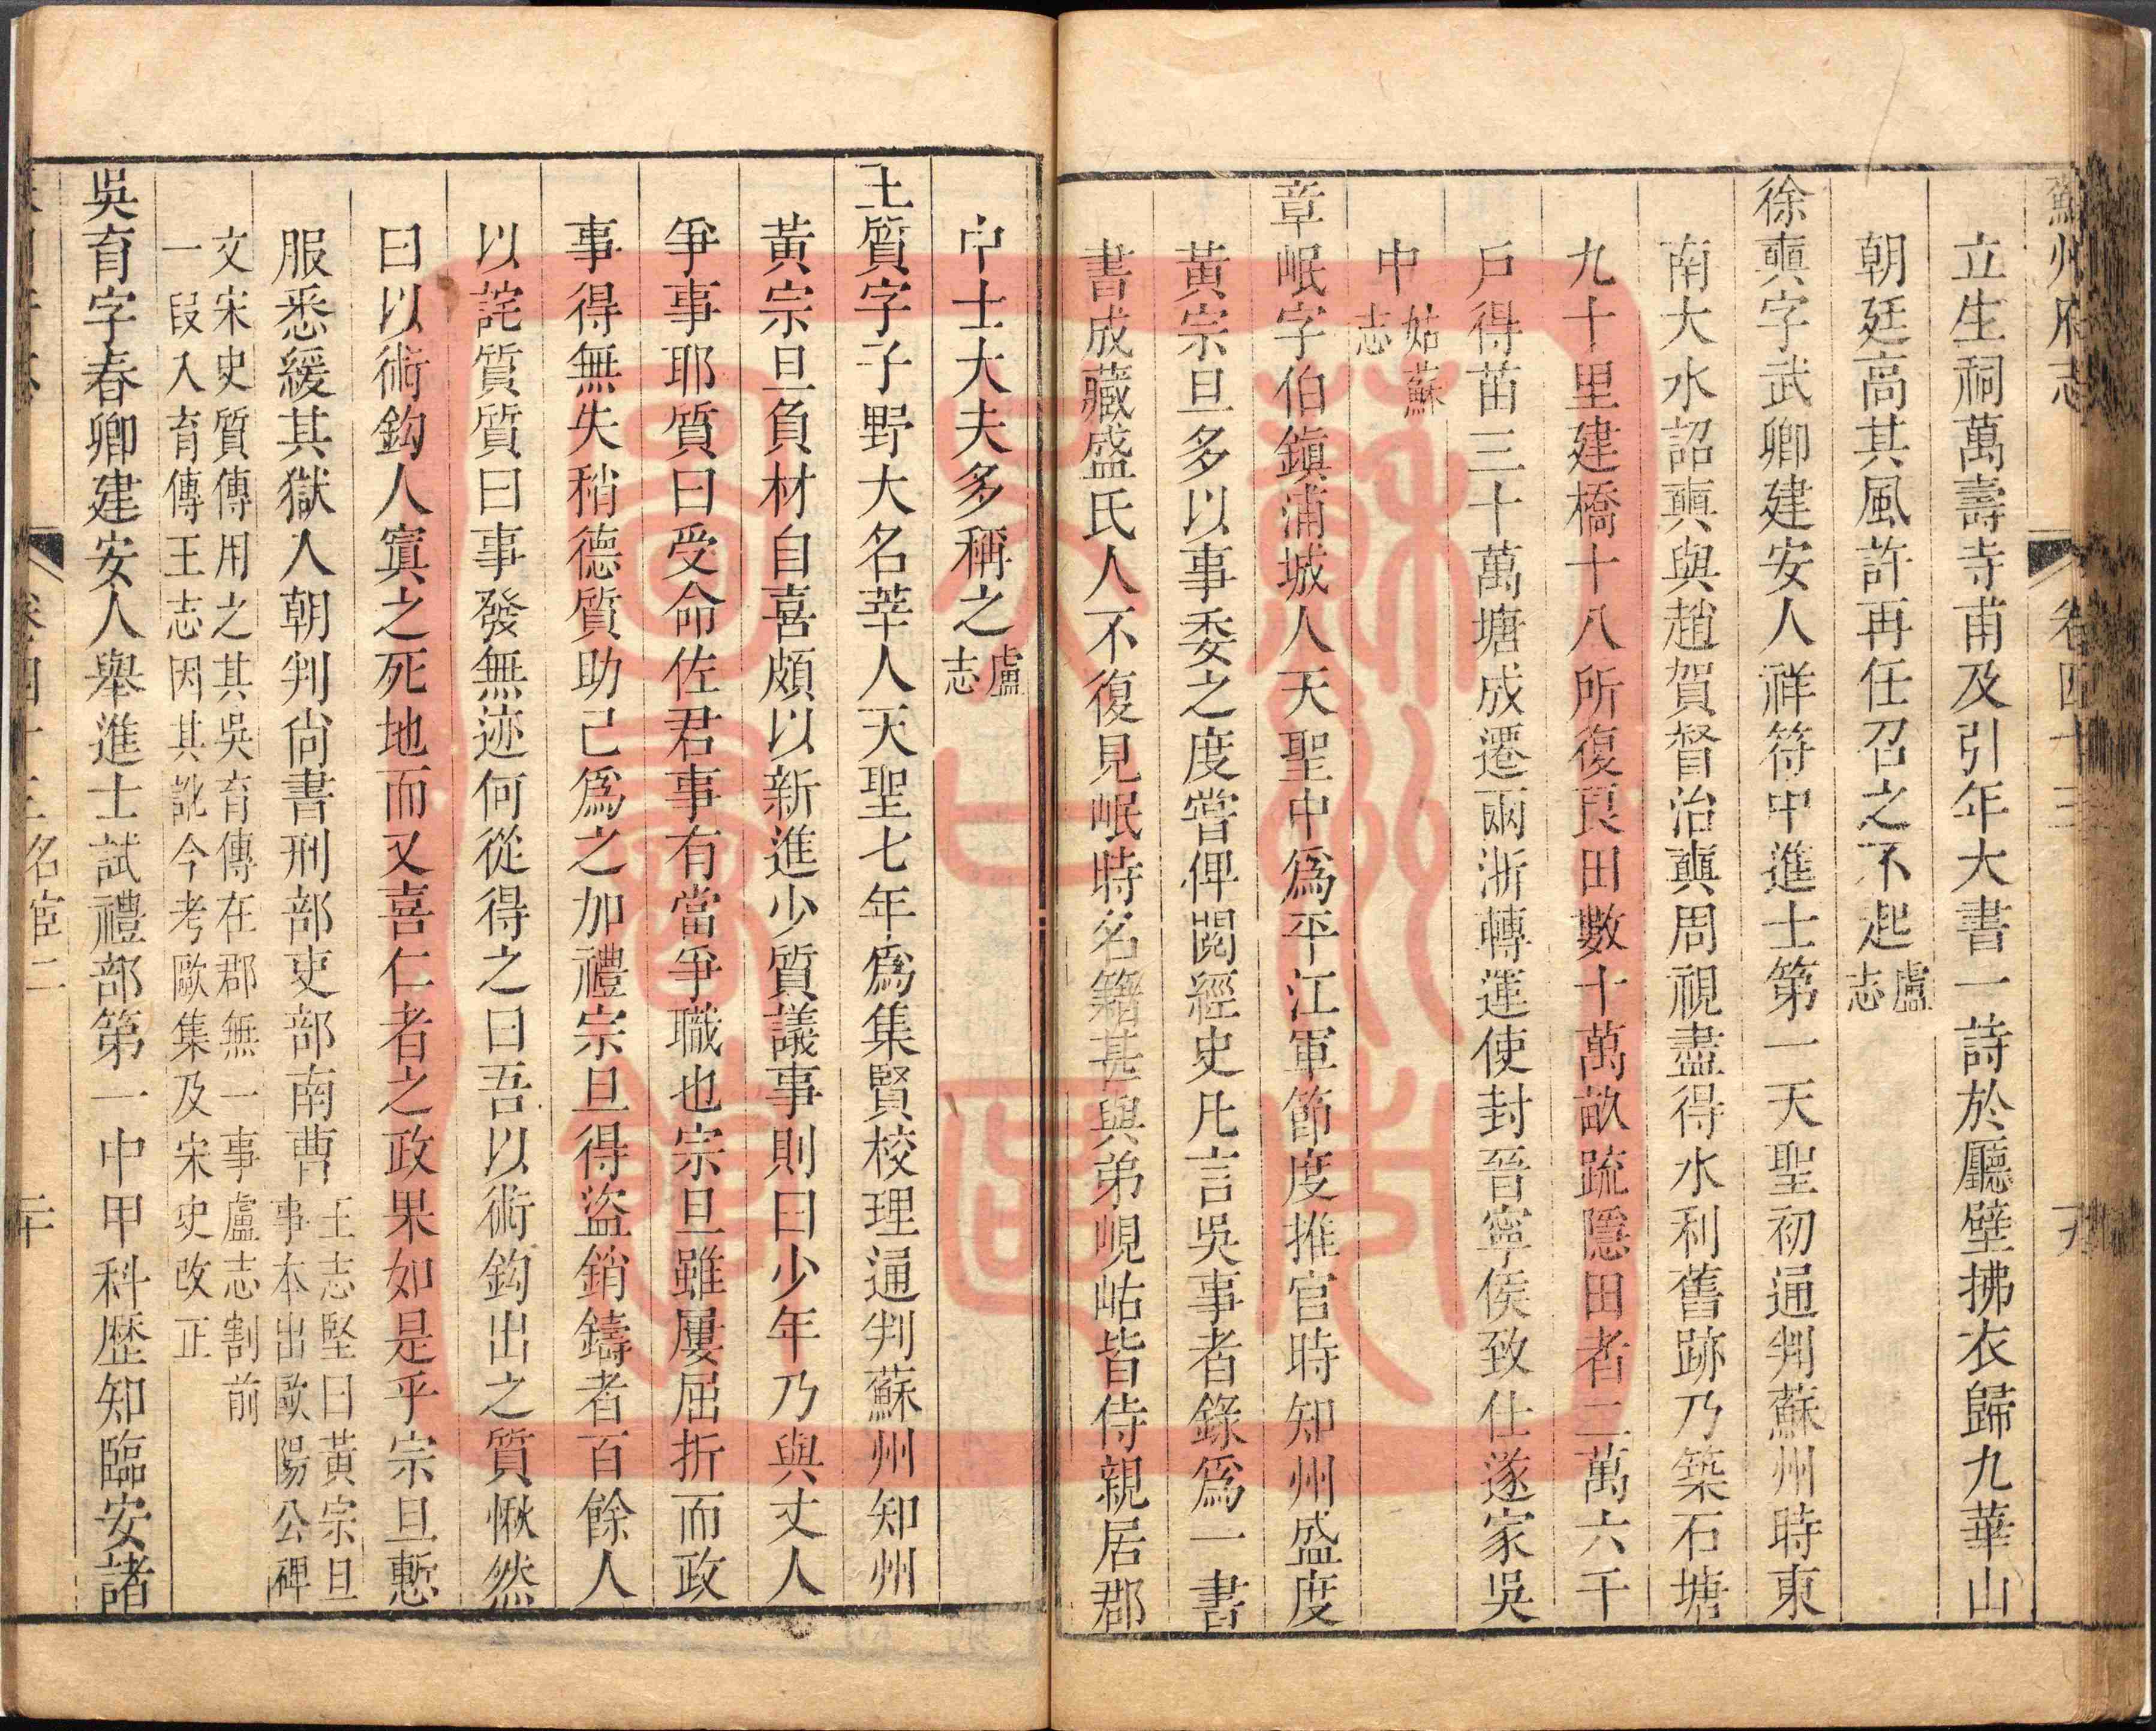 蘇州府志 卷四十三
立生祠萬壽寺甫及引年大書一詩於廳壁拂衣歸九華山
朝廷高其風許再任召之不起盧志
徐奭字武卿建安人祥符中進士第一天聖初通判蘇州時東
南大水詔奭與趙賀督治奭周視盡得水利舊跡乃築石塘
九十里建橋十八所復良田數十萬畝疏隱田者二萬六千
戶得苗三十萬塘成遷兩浙轉運使封晉寧侯致仕遂家吳
中姑蘇志
章岷字伯鎮浦城人天聖中爲平江軍節度推官時知州盛度
黃宗旦多以事委之度嘗俾閱經史凡言吳事者錄爲一書
書成藏盛氏人不復見岷時名籍甚與弟峴岵皆侍親居郡
中士大夫多稱之盧志
王質字子野大名莘人天聖七年爲集賢校理通判蘇州知州
黃宗旦負材自喜頗以新進少質議事則曰少年乃與丈人
爭事耶質曰受命佐君事有當爭職也宗旦雖屢屈折而政
事得無失稍德質助己爲之加禮宗旦得盜銷鑄者百餘人
以詫質質曰事發無迹何從得之曰吾以術鉤出之質愀然
曰以術鉤人寘之死地而又喜仁者之政果如是乎宗旦慙
服悉緩其獄入朝判尙書刑部吏部南曹王志堅曰黃宗旦
事本出歐陽公碑
文宋史質傳用之其吳育傳在郡無一事盧志割前
一段入育傳王志因其訛今考歐集及宋史改正
吳育字春卿建安人舉進士試禮部第一中甲科歷知臨安諸
卷四十三名宦二 二十
蘇州大古